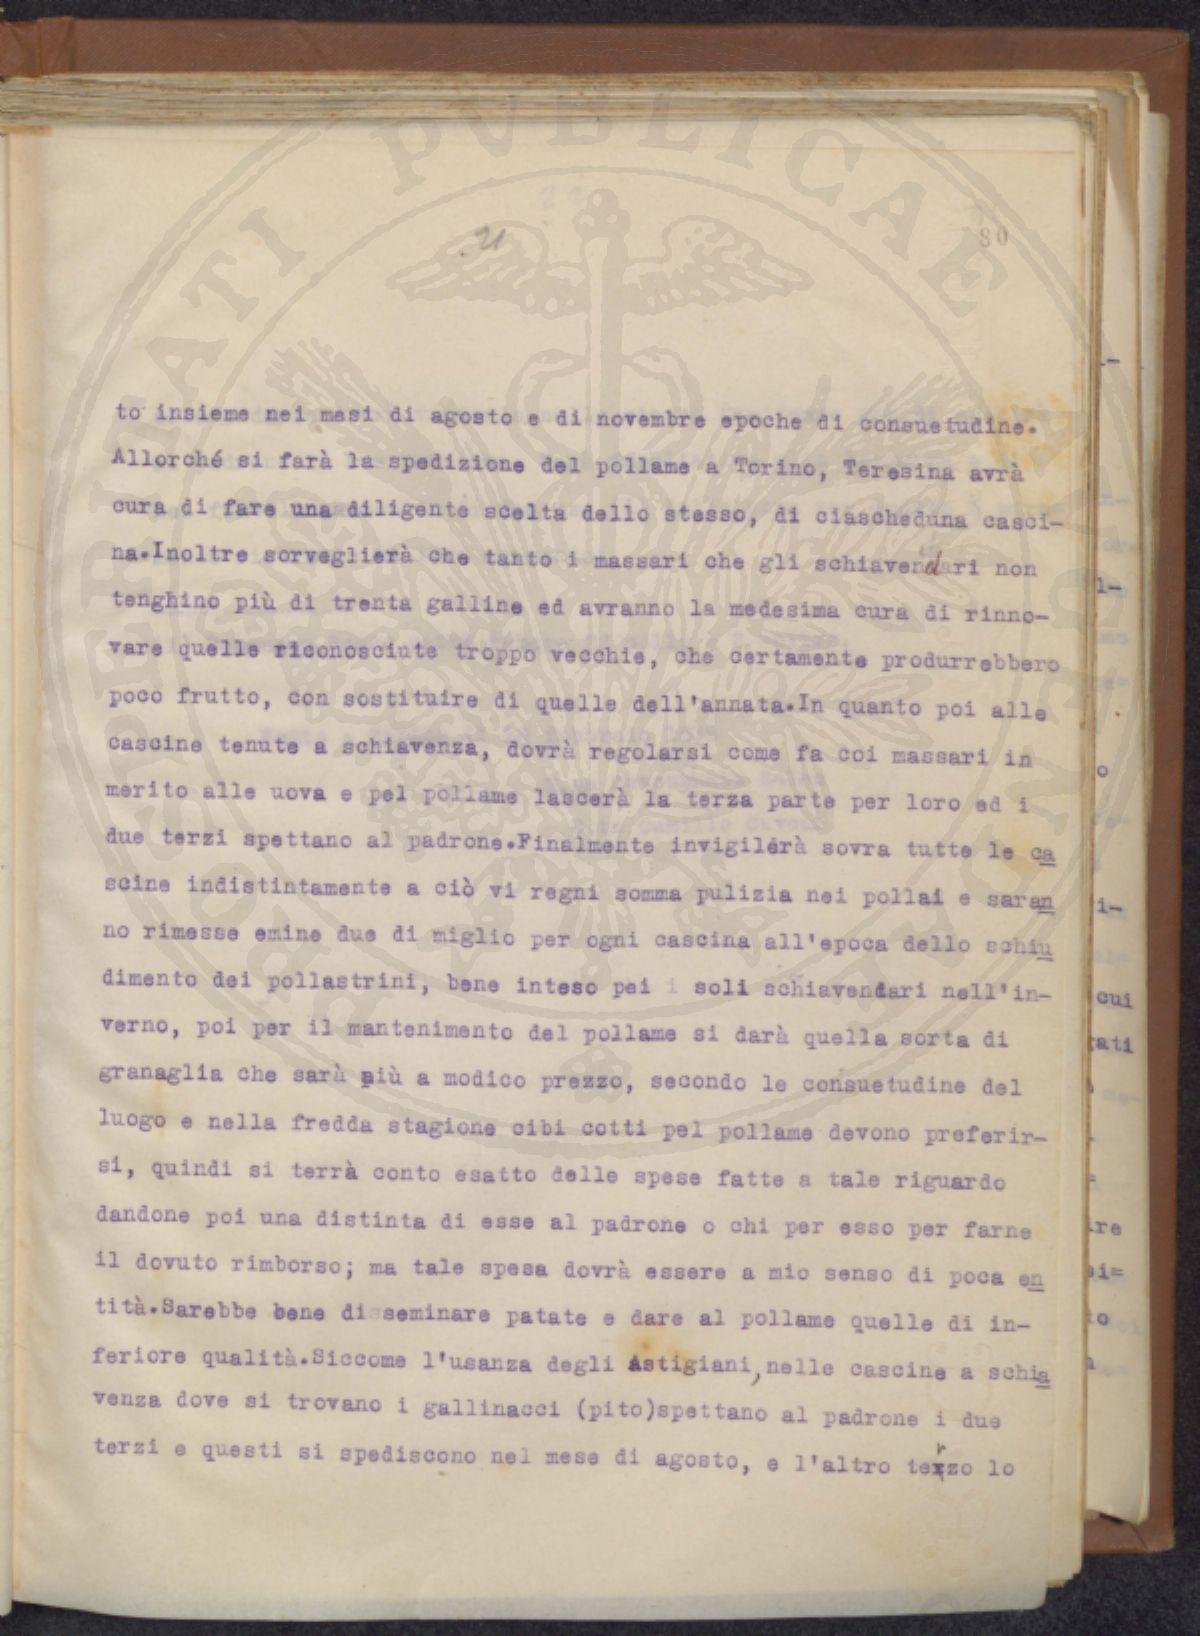 21
80
to insieme nei mesi di agosto e di novembre epoche di consuetudine.
Allorché si farà la spedizione del pollame a Torino, Teresina avrà
cura di fare una diligente scelta dello stesso, di ciascheduna casci-
na.Inoltre sorveglierà che tanto i massari che gli schiavendari non
tenghino più di trenta galline ed avranno la medesima cura di rinno-
vare quelle riconosciute troppo vecchie, che certamente produrrebbero
poco frutto, con sostituire di quelle dell'annata.In quanto poi alle
cascine tenute a schiavenza, dovrà regolarsi come fa coi massari in
merito alle uova e pel pollame lascerà la terza parte per loro ed i
due terzi spettano al padrone.Finalmente invigilerà sovra tutte le ca
scine indistintamente a ciò vi regni somma pulizia nei pollai e saran
no rimesse emine due di miglio per ogni cascina all'epoca dello schiu
dimento dei pollastrini, bene inteso pei i soli schiavendari nell'in-
verno, poi per il mantenimento del pollame si darà quella sorta di
granaglia che sarà più a modico prezzo, secondo le consuetudine del
luogo e nella fredda stagione cibi cotti pel pollame devono preferir-
si, quindi si terrà conto esatto delle spese fatte a tale riguardo
dandone poi una distinta di esse al padrone o chi per esso per farne
il dovuto rimborso; ma tale spesa dovrà essere a mio senso di poca en
tità.Sarebbe bene disseminare patate e dare al pollame quelle di in-
feriore qualità.Siccome l'usanza degli Astigiani, nelle cascine a schia
venza dove si trovano i gallinacci (pito)spettano al padrone i due
terzi e questi si spediscono nel mese di agosto, e l'altro terzo lo